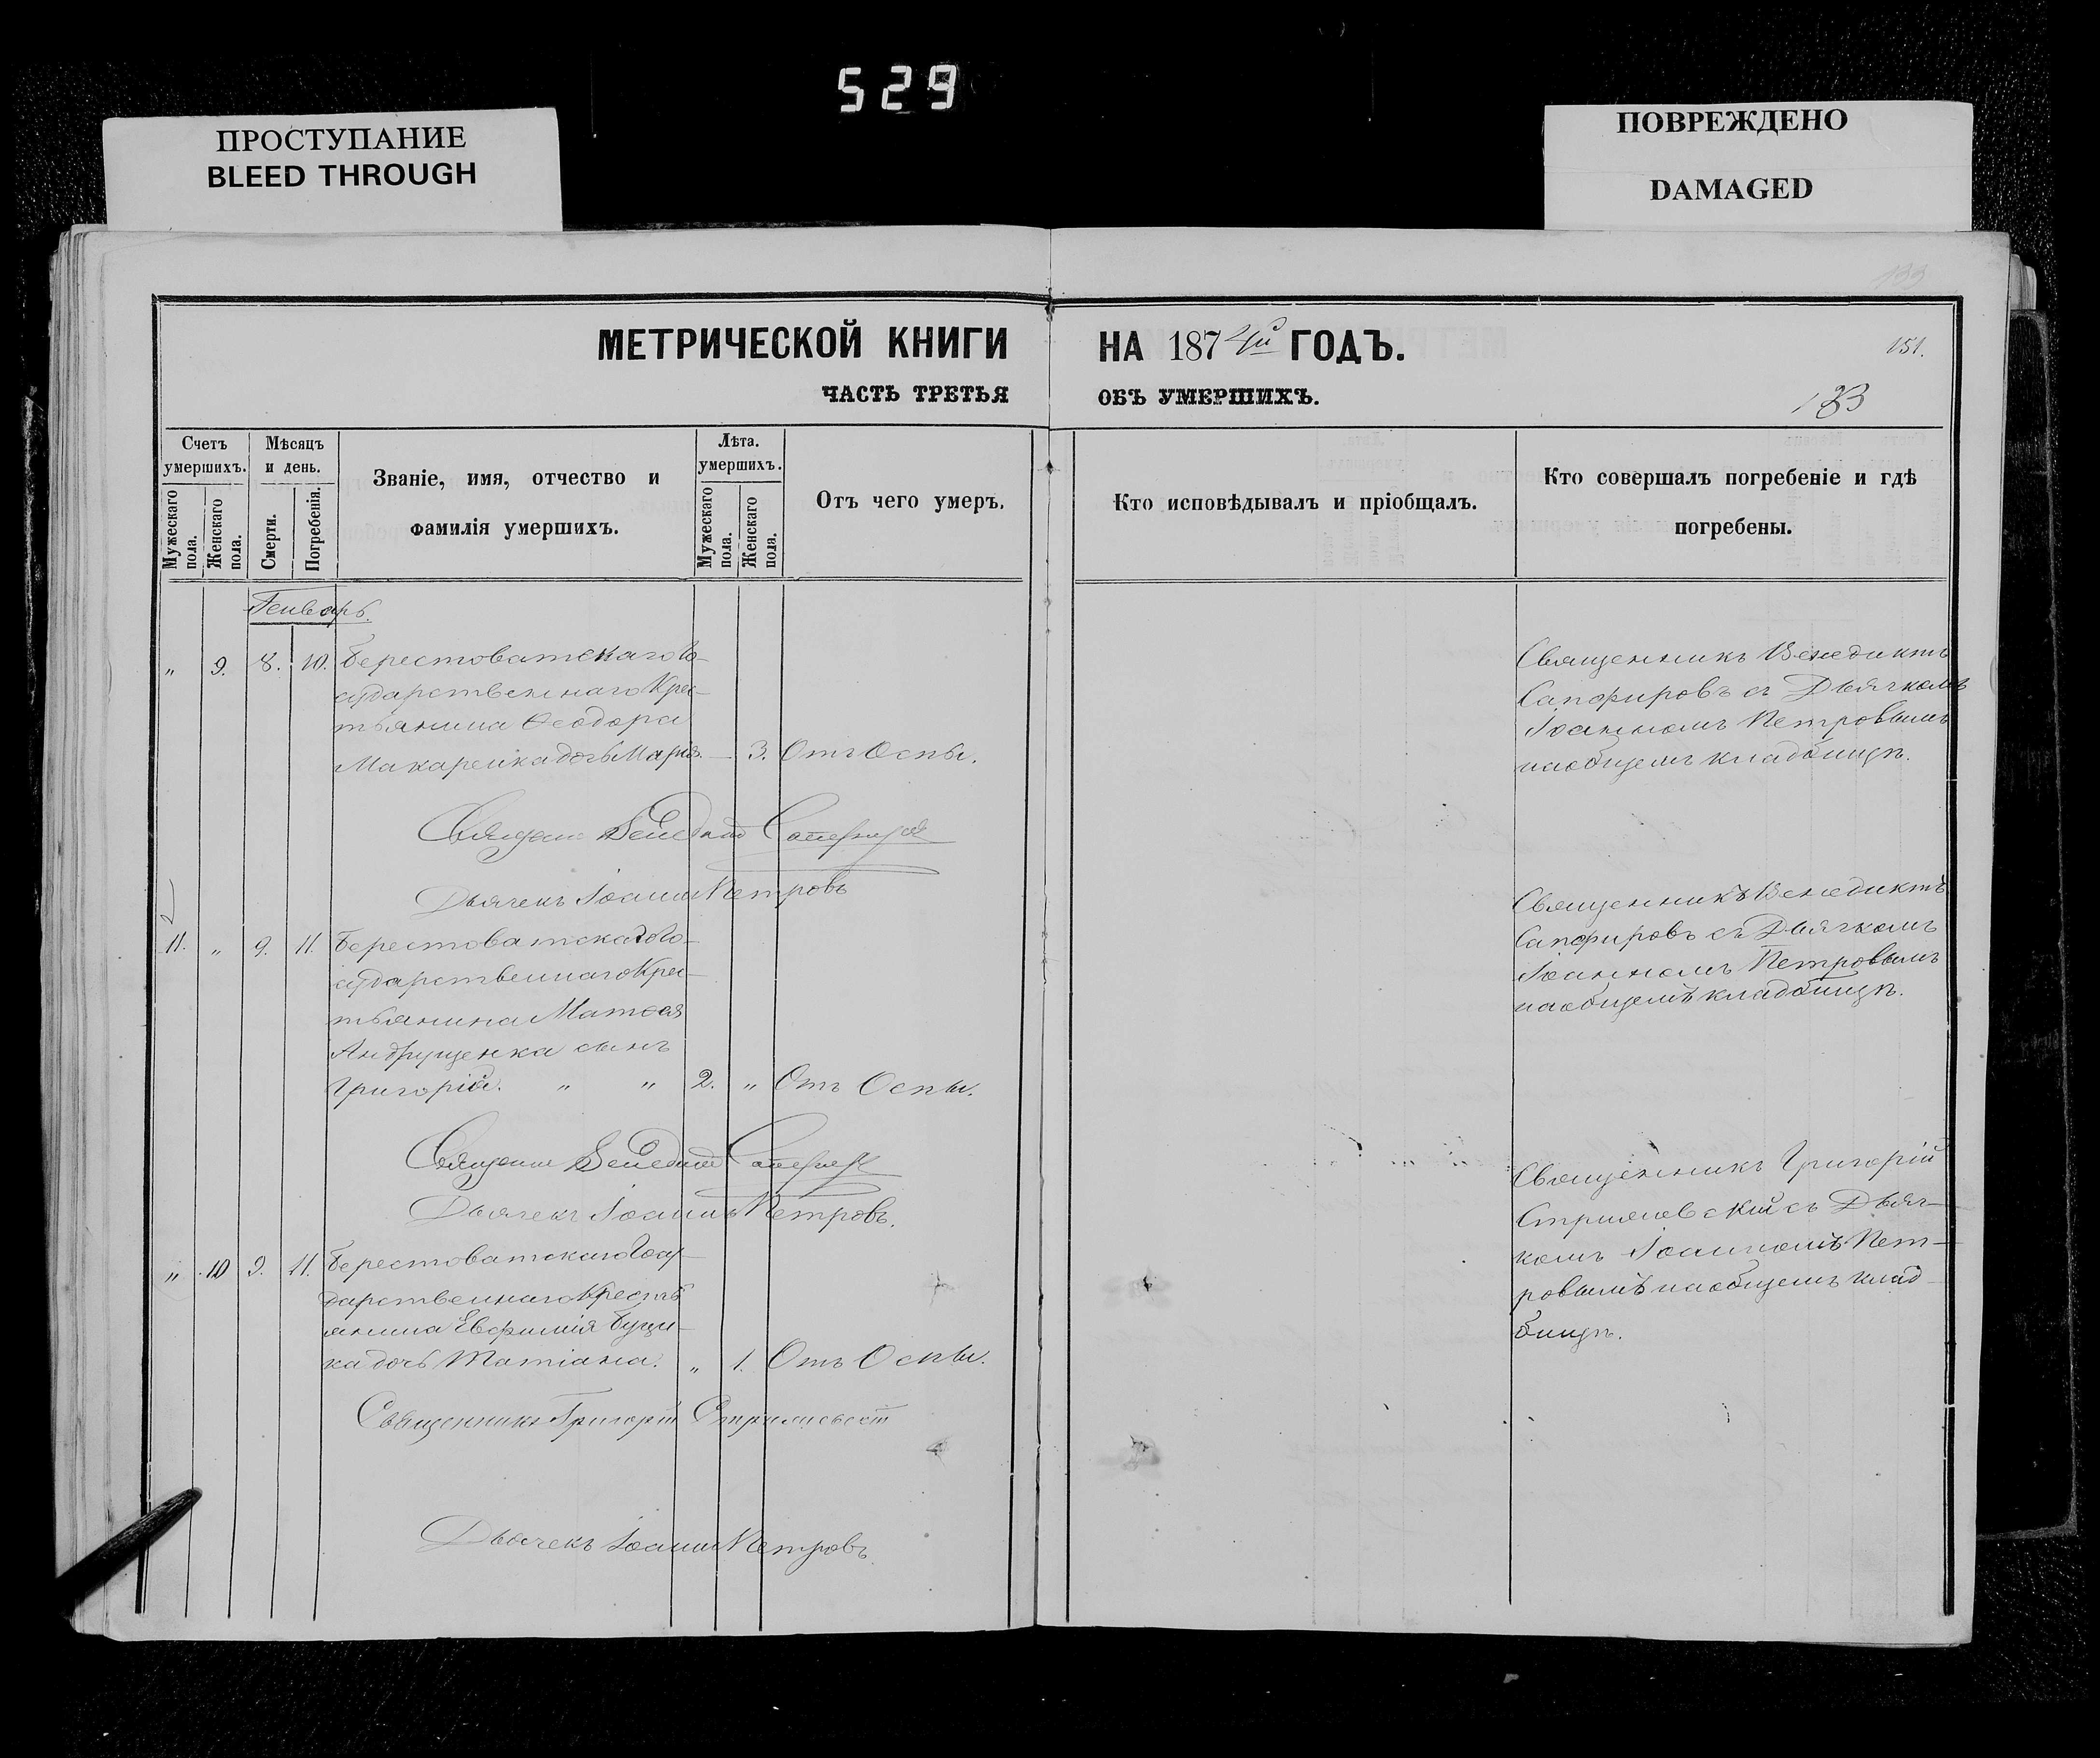 529
ПРОСТУПАНИЕ
BLEED THROUGH
ПОВРЕЖДЕНО
DAMAGED
МЕТРИЧЕСКОЙ КНИГИ НА 1874й ГОДЪ.
151.
ЧАСТЬ ТРЕТЬЯ ОБЪ УМЕРШИХЪ.
133
Счетъ умершихъ.
Мужескаго пола.
Женскаго пола.
Мѣсяцъ и день.
Смерти.
Погребенія.
Званіе, имя, отчество и
фамилія умершихъ.
Лѣта. умершихъ.
Мужескаго пола.
Женскаго пола.
Отъ чего умеръ.
Кто исповѣдывалъ и пріобщалъ.
Кто совершалъ погребеніе и гдѣ
погребены.
Генварь.
„ 9. 8. 10. Берестоватскаго Го-
сударственнаго Крес-
тьянина Ѳеодора
Макарейка дочь Марія. — 3. Отъ Оспы.
Священникъ Венедиктъ
Сапфировъ съ Дьячкомъ
Іоанномъ Петровымъ
на общемъ кладбищѣ.
Священникъ Венедиктъ Сапфировъ
Дьячекъ Іоаннъ Петровъ
11. „ 9. 11. Берестоватскаго Го-
сударственнаго Крес-
тьянина Матѳея
Андрущенка сынъ
Григорій. „ „ 2. „ Отъ Оспы.
Священникъ Венедиктъ
Сапфировъ съ Дьячкомъ
Іоанномъ Петровымъ
на общемъ кладбищѣ.
Священникъ Венедиктъ Сапфировъ
Дьячекъ Іоаннъ Петровъ.
„ 10 9. 11. Берестоватскаго Госу-
дарственнаго Кресть
янина Евфимія Буци-
ка дочь Татіана. „ 1. Отъ Оспы.
Священникъ Григорій
съ Дьяч-
комъ Іоанномъ Пет-
ровымъ на общемъ клад-
бищѣ.
Священникъ Григорій
Дьячекъ Іоаннъ Петровъ.